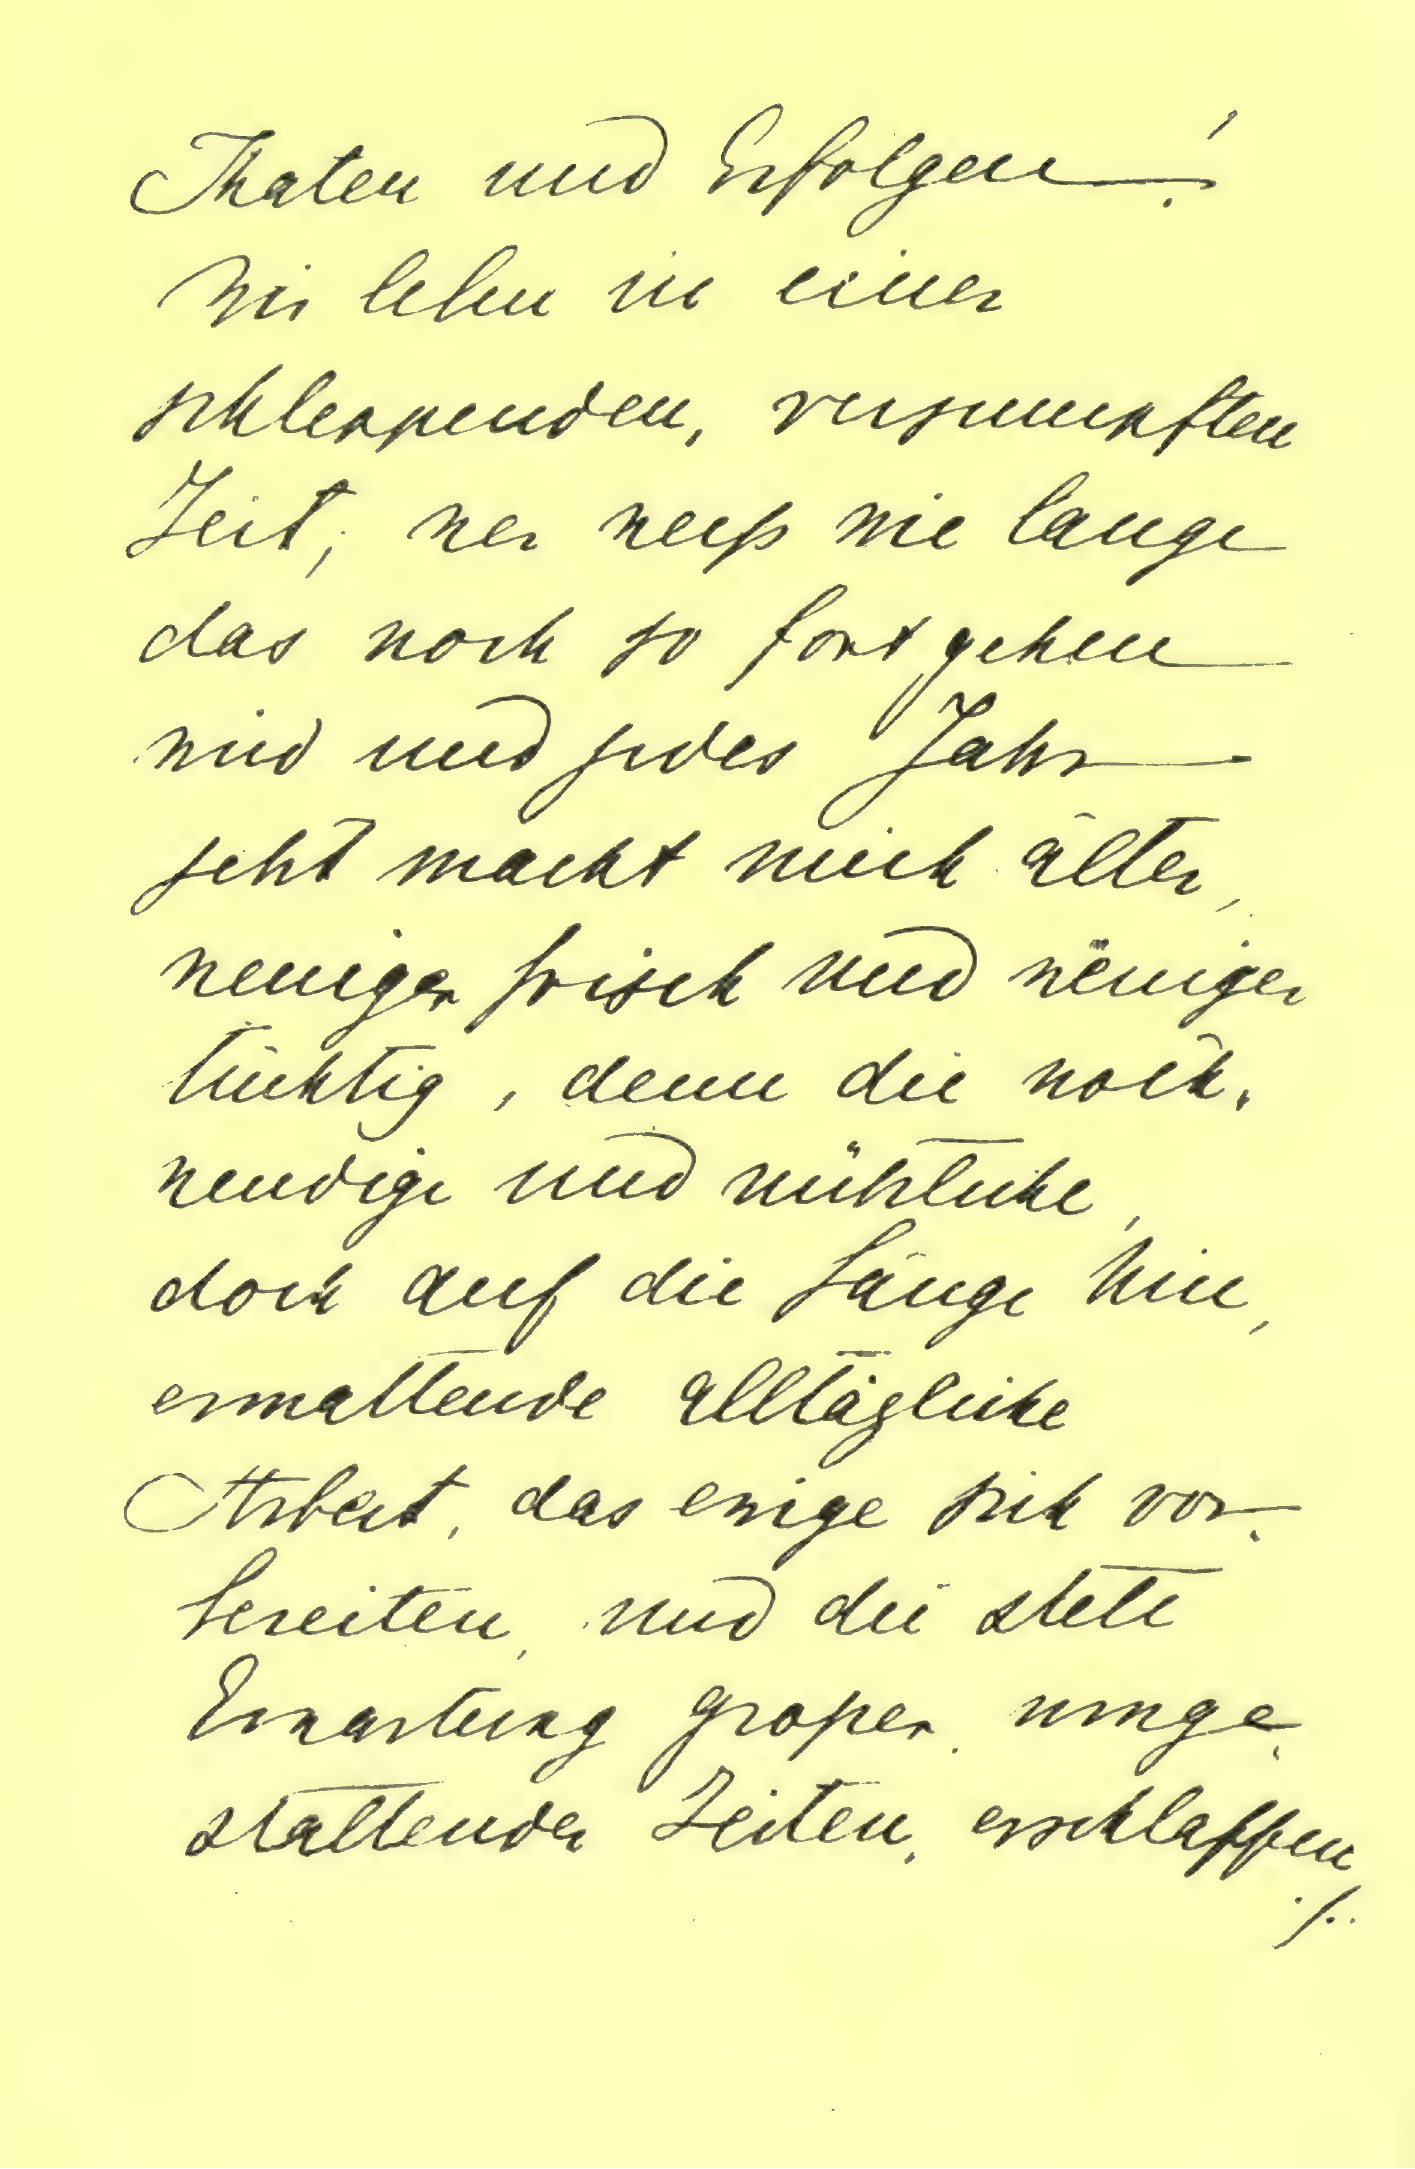 Thaten und Erfolgen!
Wir leben in einer
schleppenden, versumpften
Zeit; wer weiß wie lange
das noch so fortgehen
wird und jedes Jahr
jetzt macht mich älter,
weniger frisch und weniger
tüchtig, denn die noth-
wendige und nützliche,
doch auf die Länge hin,
ermattende alltägliche
Arbeit, das ewige sich vor-
bereiten, und die stete
Erwartung großer, umge-
staltender Zeiten, erschlaffen
./..